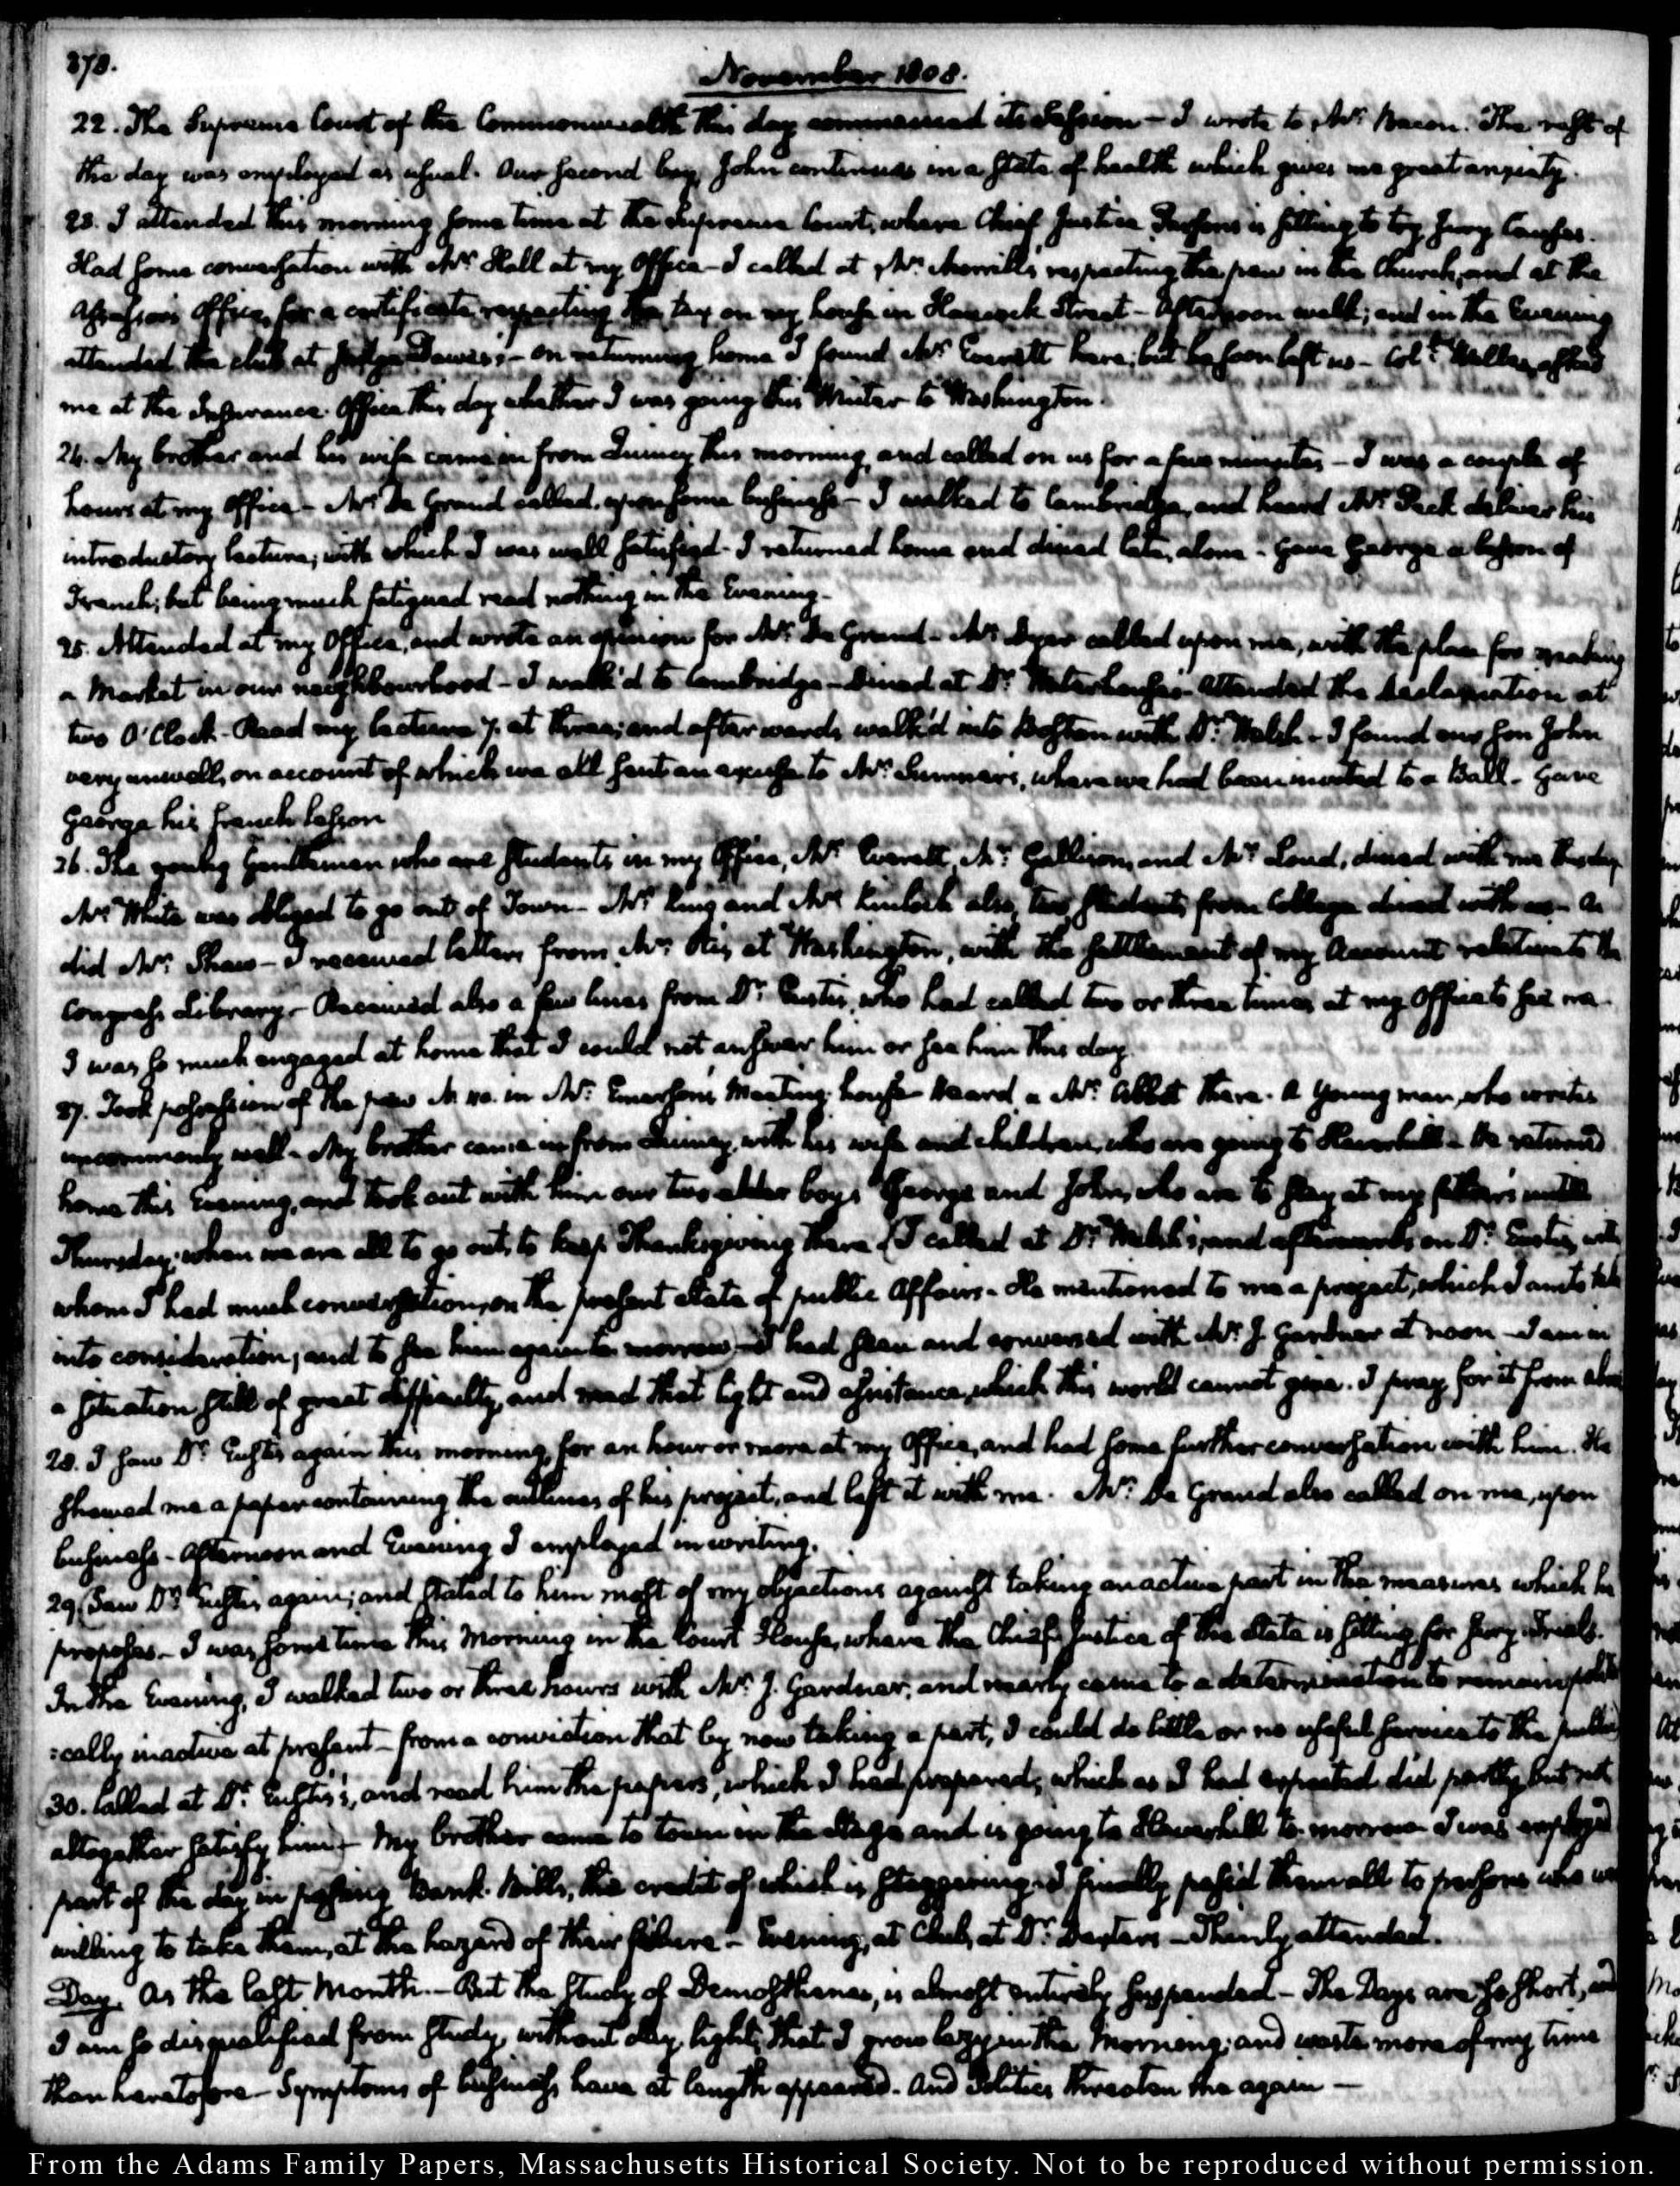 378.
November 1808.
22. The Supreme Court of the Commonwealth this day commenced its Session — I wrote to Mr. Bacon. The rest of
the day was employed as usual. Our second boy, John continues in a state of health which gives me great anxiety.
23. I attended this morning some time at the Supreme Court, where Chief Justice Parsons is sitting to try Jury Causes.
Had some conversation with Mr. Hall at my Office — I called at Mr. Merrill's respecting the pew in the Church, and at the
Assessors Office, for a certificate respecting the tax on my house in Hancock Street — Afternoon walk; and in the Evening
attended the club at Judge Davis's — On returning home I found Mr. Everett here; but he soon left us — Coll. asked
me at the Insurance Office this day whether I was going this Winter to Washington.
24. My brother and his wife came in from Quincy this morning, and called on us for a few minutes — I was a couple of
hours at my Office — Mr. De Grand called, upon some business — I walked to Cambridge, and heard Mr. Peck deliver his
introductory lecture; with which I was well satisfied — I returned home and dined late, alone — Gave George a lesson of
French; but being much fatigued read nothing in the Evening —
25. Attended at my Office, and wrote an opinion for Mr. De Grand — Mr. Dyer called upon me, with the plan for making
a Market in our neighbourhood — I walk'd to Cambridge — Dined at Dr. Waterhouse's — Attended the declamation at
two O'Clock — Read my lecture 7. at three; and afterwards walk'd into Boston with Dr. Welsh — I found our son John
very unwell, on account of which we all sent an excuse to Mr. Sumner's, where we had been invited to a Ball — Gave
George his french lesson
26. The young Gentlemen who are students in my Office, Mr. Everett, Mr. Gallison, and Mr. Loud, dined with me this day
Mr. White was obliged to go out of Town — Mr. King and Mr. Kinloch also, two students from College dined with us — As
did Mr. Shaw — I received letters from Mr. Otis, at Washington, with the settlement of my Account relative to the
Congress Library — Received also a few lines from Dr. Eustis, who had called two or three times at my Office to see me.
I was so much engaged at home that I could not answer him or see him this day.
27. Took possession of the pew N. 110. in Mr. Emerson's Meeting-house — Heard a Mr. Abbot there. A young man, who writes
uncommonly well — My brother came in from Quincy, with his wife and children, who are going to Haverhill — He returned
home this Evening, and took out with him our two elder boys George and John, who are to stay at my father's untill
Thursday; when we are all to go out, to keep Thanksgiving there. I called at Dr. Welsh's, and afterwards on Dr. Eustis, with
whom I had much conversation, on the present State of public Affairs — He mentioned to me a project, which I am to take
into consideration, and to see him again to-morrow — I had seen and conversed with Mr. J. Gardner at noon — I am in
a situation still of great difficulty, and need that light and assistance, which this world cannot give. I pray for it from above
28. I saw Dr. Eustis again this morning, for an hour or more at my Office, and had some further conversation with him. He
shewed me a paper containing the outlines of his project, and left it with me. Mr. De Grand also called on me, upon
business — Afternoon and Evening I employed in writing.
29. Saw Dr. Eustis again; and stated to him most of my objections against taking an active part in the measures which he
proposes — I was some time this Morning in the Court House, where the Chief Justice of the State is sitting for Jury Trials.
In the Evening, I walked two or three hours with Mr. J. Gardner; and nearly came to a determination to remain politi
:cally inactive at present — from a conviction that by now taking a part, I could do little or no useful service to the public
30. Called at Dr. Eustis's, and read him the papers, which I had prepared; which as I had expected did partly, but not
altogether satisfy him — My brother came to town in the Stage and is going to Haverhill to-morrow I was employed
part of the day in passing Bank-Bills, the credit of which is staggering — I finally pass'd them all to persons who were
willing to take them, at the hazard of their failure — Evening, at Club, at Dr. Dexter's — Thinly attended.
Day. As the last Month. — But the study of Demosthenes, is almost entirely suspended — The Days are so short, and
I am so disqualified from study, without day-light, that I grow lazy in the Morning; and waste more of my time
than heretofore — Symptoms of business have at length appeared. And Politics threaten me again —
From the Adams Family Papers, Massachusetts Historical Society. Not to be reproduced without permission.